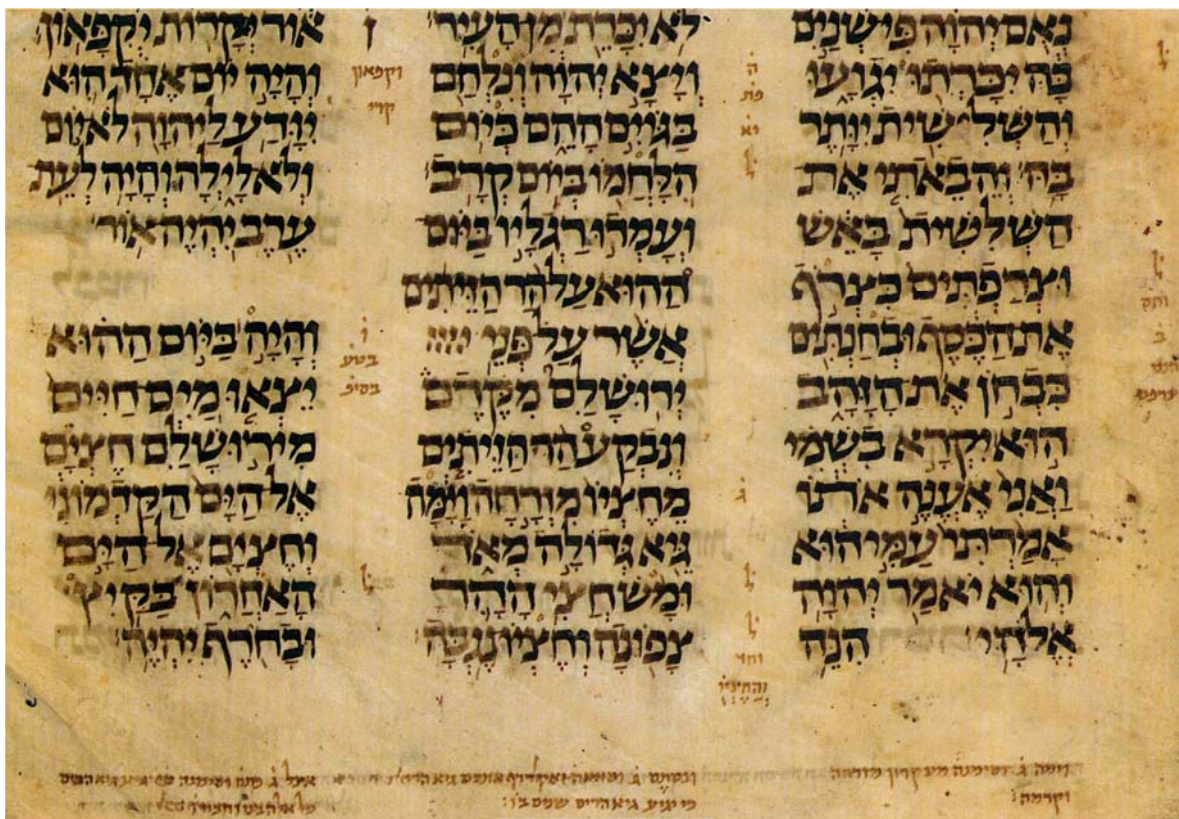 נְאֻם יְהוָה פִּי שְׁנַיִם
בָּהּ יִכָּרְתוּ יִגְוָעוּ
וְהַשְּׁלִשִׁית יִוָּתֶר
בָּהּ וְהֵבֵאתִי אֶת
הַשְּׁלִשִׁית בָּאֵשׁ
וּצְרַפְתִּים כִּצְרֹף
אֶת הַכֶּסֶף וּבְחַנְתִּים
כִּבְחֹן אֶת הַזָּהָב
הוּא יִקְרָא בִשְׁמִי
וַאֲנִי אֶעֱנֶה אֹתוֹ
אָמַרְתִּי עַמִּי הוּא
וְהוּא יֹאמַר יְהוָה
אֱלֹהָי הִנֵּה
לֹא יִכָּרֵת מִן הָעִיר
וְיָצָא יְהוָה וְנִלְחַם
בַּגּוֹיִם הָהֵם כְּיוֹם
הִלָּחֲמוֹ בְּיוֹם קְרָב
וְעָמְדוּ רַגְלָיו בַּיּוֹם
הַהוּא עַל הַר הַזֵּיתִים
אֲשֶׁר עַל פְּנֵי
יְרוּשָׁלִַם מִקֶּדֶם
וְנִבְקַע הַר הַזֵּיתִים
מֵחֶצְיוֹ מִזְרָחָה וָיָמָּה
גֵּיא גְּדוֹלָה מְאֹד
וּמָשׁ חֲצִי הָהָר
צָפוֹנָה וְחֶצְיוֹ נֶגְבָּה
אוֹר יְקָרוֹת יִקְפָּאוֹן
וְהָיָה יוֹם אֶחָד הוּא
יִוָּדַע לַיהוָה לֹא יוֹם
וְלֹא לָיְלָה וְהָיָה לְעֵת
עֶרֶב יִהְיֶה אוֹר
וְהָיָה בַּיּוֹם הַהוּא
יֵצְאוּ מַיִם חַיִּים
מִירוּשָׁלִַם חֶצְיָם
אֶל הַיָּם הַקַּדְמוֹנִי
וְחֶצְיָם אֶל הַיָּם
הָאַחֲרוֹן בַּקַּיִץ
וּבָחֹרֶף יִהְיֶה
ל
ב
ה
פת
יא
ל
ג
ל
ל
וחד
והחציו
וקפאון
קרי
ל
וימה ג וסימנה מעקרון מזרחה
וקדמה
כי יגיע גיא הרים